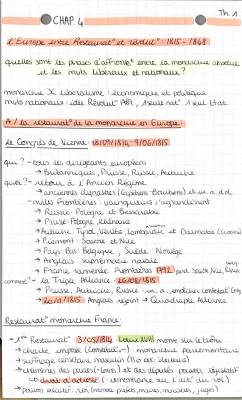 Th. 1
CHAP. 4
l'Europe entre Restaurat° et révolut° : 1815 - 1848
quelles sont les phases d'affrontet entre la monarchie absolue
et les mvts libéraux et nationaux ?
monarchie X libéralisme : économique et politique
mvts nationaux : idée Révolut° 1789, 1 seule nat° 1 seul État
A / la restaurat° de la monarchie en Europe
Le Congrès de Vienne : 18/09/1814 - 9/06/1815
qui ? - tous les dirigeants européens
→ Britanniques, Prusse, Russie, Autriche
quoi ? - retour à l'Ancien Régime
→ anciennes dynasties (Capétiens - Bourbons)
- nvlles frontières : vainqueurs s'agrandissent
→ Russie : Pologne et Bessarabie
→ Prusse : Pologne, Rhénanie
→ Autriche : Tyrol, Vénétie, Lombardie et Dalmatie
→ Piémont : Savoie et Nice
→ Pays-Bas : Belgique, Suède : Norvège
→ Anglais : suprématie navale
→ France ramenée frontières 1792 perd Savoie, Nice,
comment ? - la Triple Alliance 26/09/1815
→ Prusse, Autriche, Russie
→ 20/11/1815 Anglais rejoint → Quadruple Alliance
Restaurat° monarchie France :
- 1ère Restaurat° 3/05/1814 Louis XVIII monte sur le trône
→ charte, impose (Constitut°) → monarchie parlementaire
→ suffrage censitaire masculin
→ chambres des pairs (+ lois) et des députés pouvoir législatif
↳ droit d'adresse (
→ pouvoir exécutif : roi (nomme préfets, maires, ministres, juges)